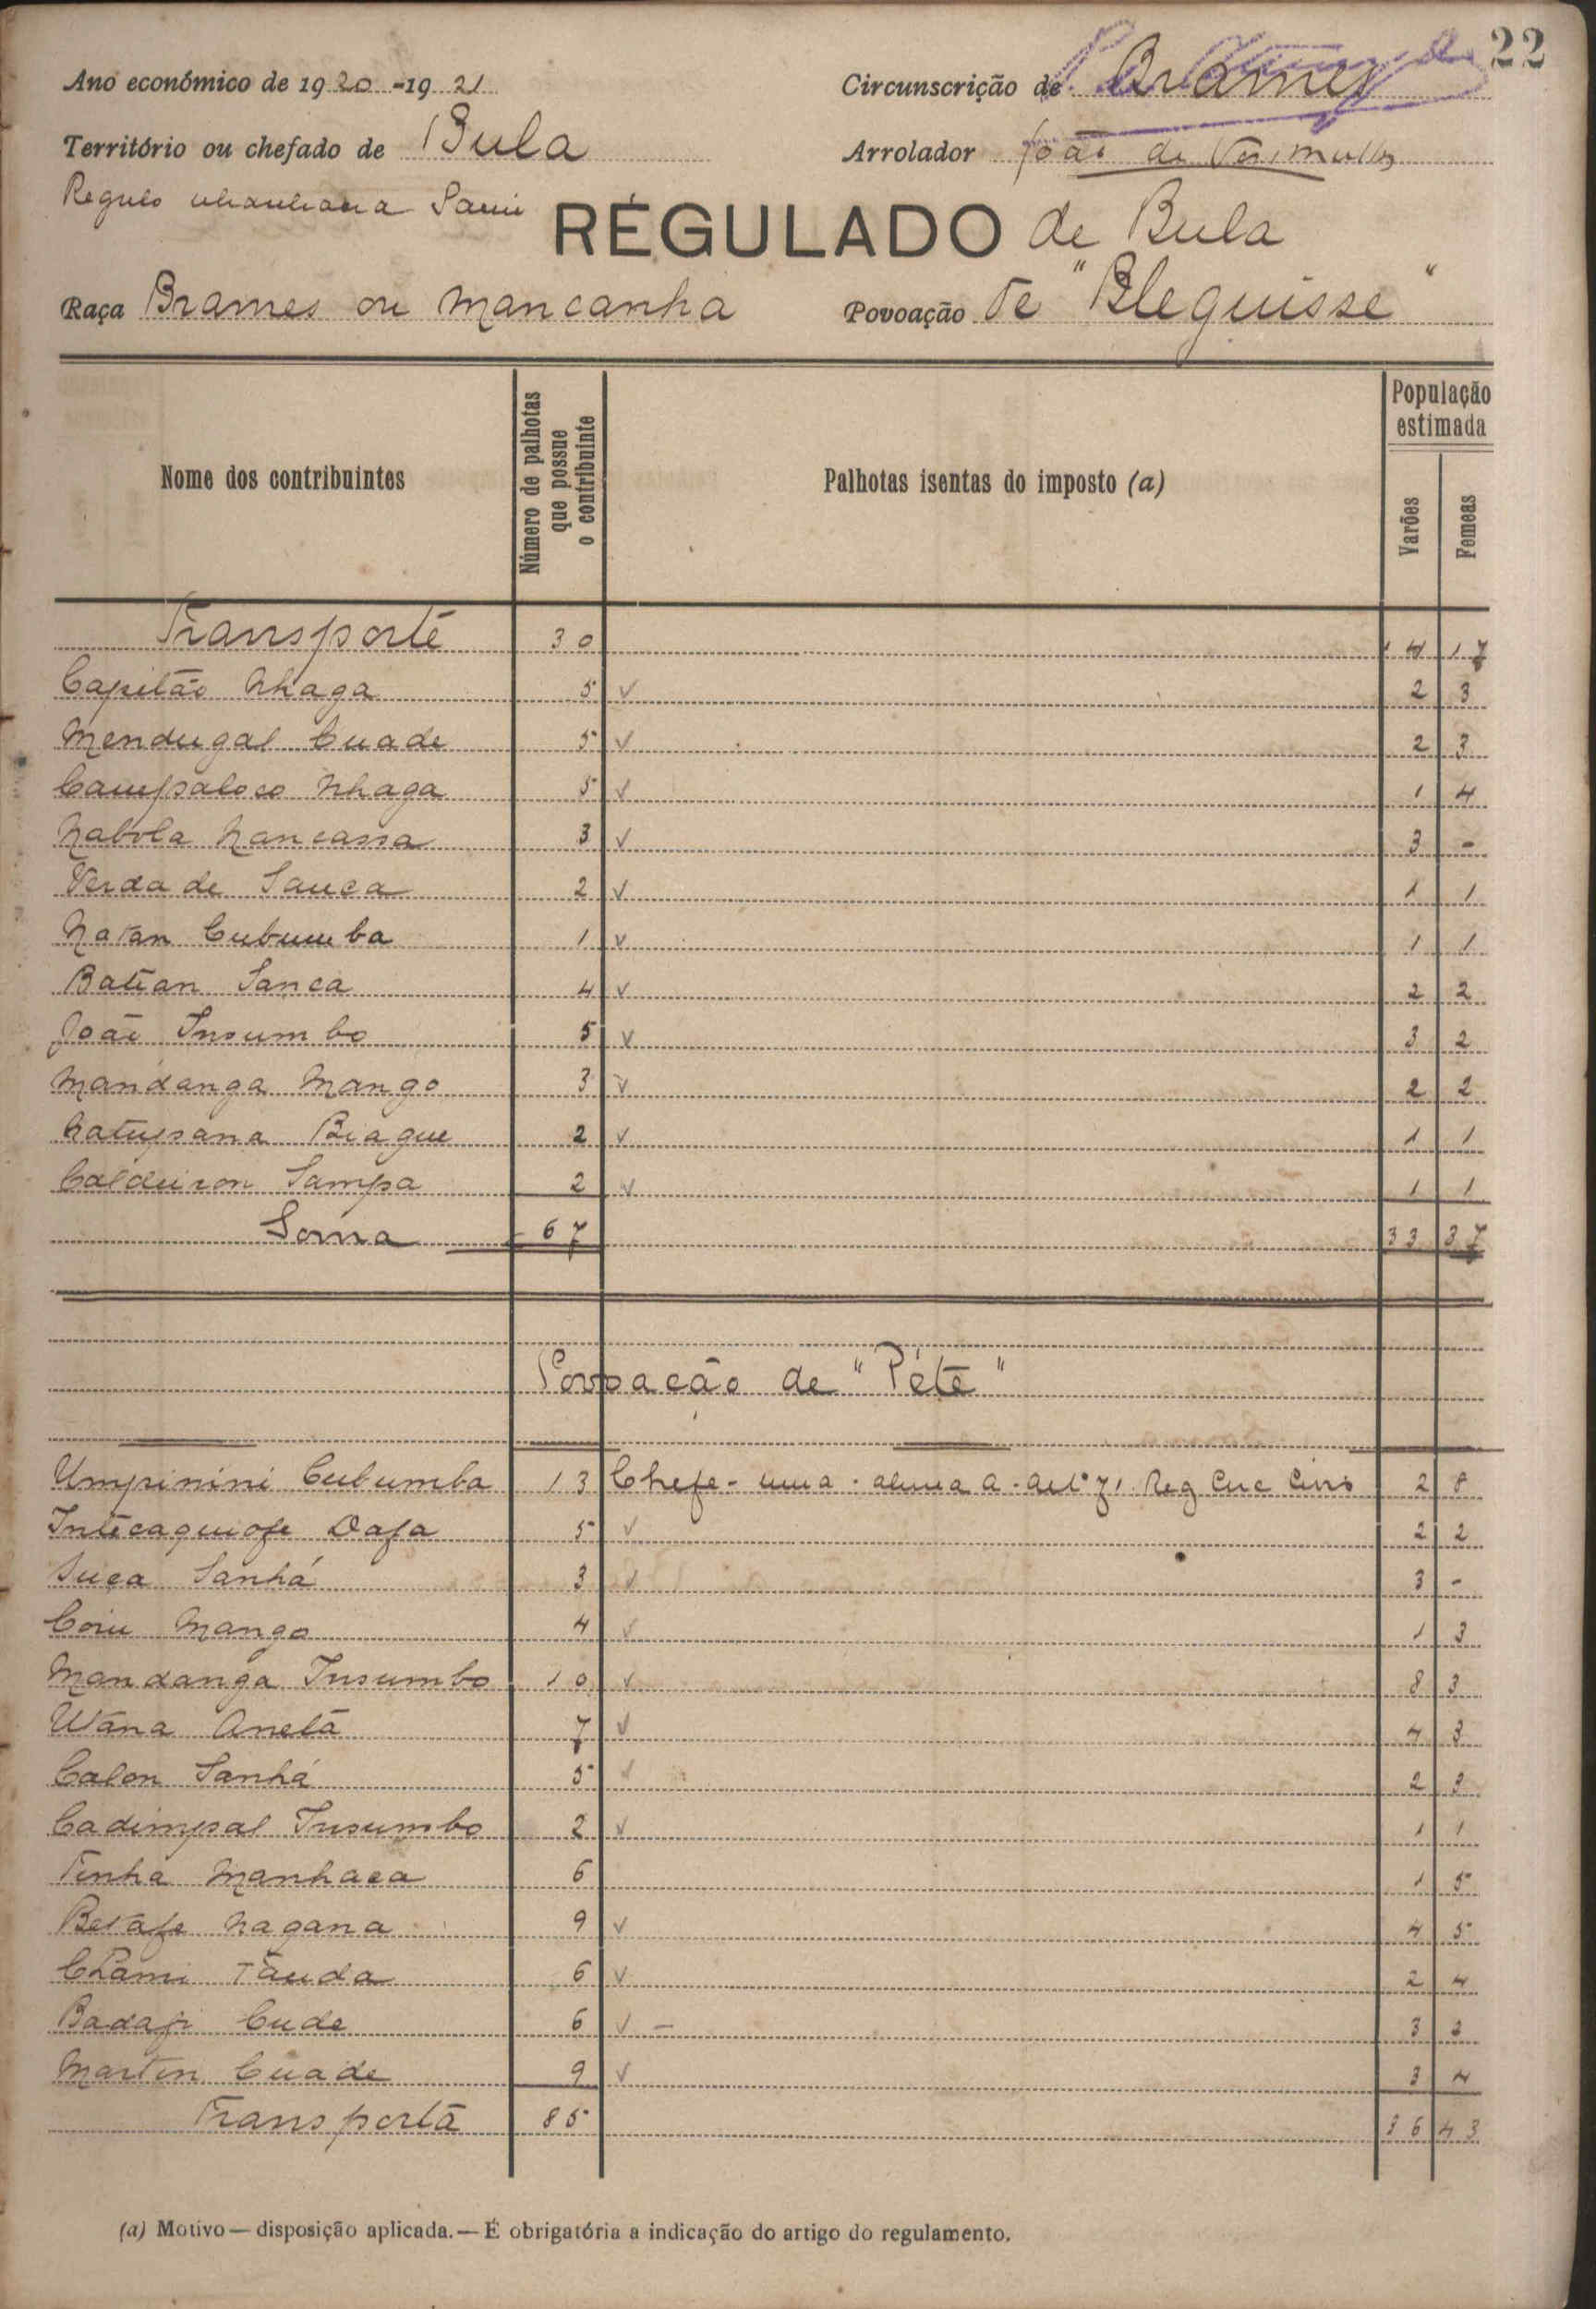 22
Ano económico de 1920-1921 Circunscrição de Brames
Território ou chefado de Bula Arrolador João de
Regulo
REGULADO de Bula
Raça Brames ou Mancanha Povoação de "Bleguisse"
Nome dos contribuintes Número de palhotas que possue o contribuinte Palhotas isentas do imposto (a) População estimada Varões Femeas
Transporte 30 14 17
Capitão Nhaga 5 v 2 3
Mendugal Cuade 5 v 2 3
Campaloco Nhaga 5 v 1 4
Nabola Nancassa 3 v 3 -
Verdade Sanca 2 v 1 1
Natan Cubumba 1 v 1 1
Batian Sanca 4 v 2 2
João Insumbo 5 v 3 2
Mandanga Mango 3 v 2 2
Natupana Biague 2 v 1 1
Caldeiron Sampa 2 v 1 1
Soma 67 33 37
Povoação de "Péte"
Umpinini Cubumba 13 Chefe - uma - alinea a - artº 71 Reg Circ Civis 2 8
Intecaquiofe Dafa 5 v 2 2
Suca Sanhá 3 v 3 -
Coiu Mango 4 v 1 3
Mandanga Insumbo 10 v 8 3
Utana Aneta 7 v 4 3
Calon Sanhá 5 v 2 3
Cadimpal Insumbo 2 v 1 1
Tenha Manhaca 6 1 5
Betafe Nagana 9 v 4 5
Chami Tauda 6 v 2 4
Badafi Cude 6 v - 3 2
Martin Cuade 9 v 3 4
Transporta 85 36 43
(a) Motivo — disposição aplicada. — É obrigatória a indicação do artigo do regulamento.